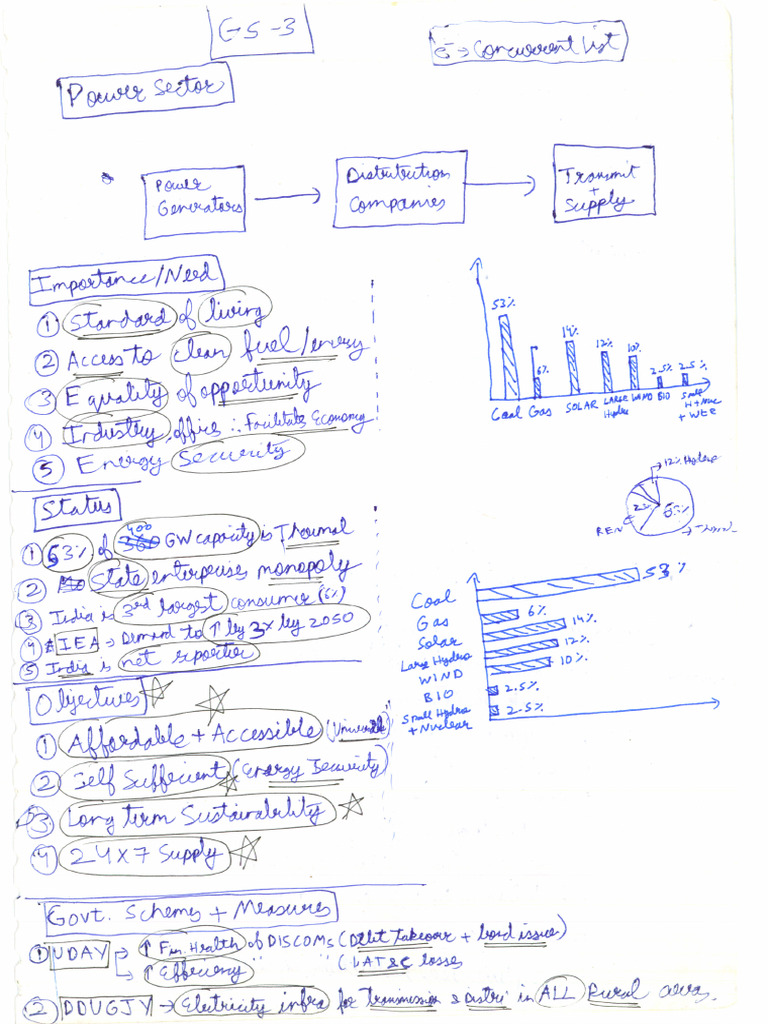 GS-3
E → Concurrent List
Power Sector
Power Generators
Distribution Companies
Transmit + Supply
Importance/Need
① Standard of living
② Access to clean fuel/energy
③ Equality of opportunity
④ Industry, office ∴ Facilitates Economy
⑤ Energy Security
53%
6%
14%
12%
10%
2.5%
2.5%
Coal Gas SOLAR LARGE Hydro WIND BIO Small H + Nuc + WTE
Status
① 53% of 400 GW capacity is Thermal
② State enterprises monopoly
③ India is 3rd largest consumer (6%)
④ IEA → Demand to ↑ by 3x by 2050
⑤ India is net exporter
12% Hydro
63%
REN
Coal 53%
Gas 6%
Solar 14%
Large Hydro 12%
WIND 10%
BIO 2.5%
Small Hydro + Nuclear 2.5%
Objectives
① Affordable + Accessible (Universal)
② Self Sufficient (Energy Security)
③ Long term Sustainability
④ 24x7 Supply
Govt. Schemes + Measures
① UDAY → ↑ Fin. Health of DISCOMs (Debt takeover + bond issue)
→ ↑ Efficiency " " (↓AT&C losses
② DDUGJY → Electricity infra for Transmission & Distri in ALL Rural areas.